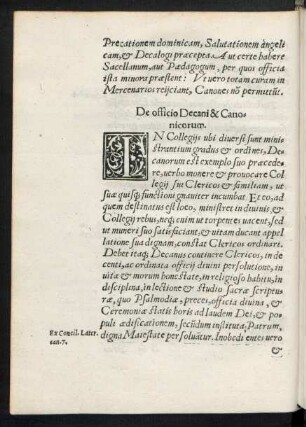 Precationem dominicam, Salutationem angeli
cam, & Decalogi præcepta. Aut certe habere
Sacellanum, aut Pædagogum, per quos officia
ista minora præstent: Vt vero totam curam in
Mercenarios reijciant, Canones nõ permittũt.
De officio Decani & Cano-
nicorum.
IN Collegijs ubi diversi sunt mini-
strantium gradus & ordines, De-
canorum est exemplo suo præcede-
re, verbo monere & provocare Col
legij sui Clericos & familiam, ut
suæ quisq; functioni gnauiter incumbat. Et eo, ad
quem destinatus est loco, ministret in divinis, &
Collegij rebus, neq; enim ut torpentes vacent, sed
ut muneri suo satisfaciant, & vitam ducant appel
latione sua dignam, constat Clericos ordinari.
Debet itaq; Decanus continere Clericos, in de
centi, ac ordinata officij divini persolutione, in
vitæ & morum honestate, in religioso habitu, in
disciplina, in lectione & studio sacræ scriptu-
ræ, quo Psalmodiæ, preces, officia divina, &
Ceremoniæ statis horis ad laudem Dei, & po-
puli ædificationem, secũdum instituta, Patrum,
Ex Concil. Later.
can. 7.
digna Maiestate persoluãtur. Inobedientes vero
&